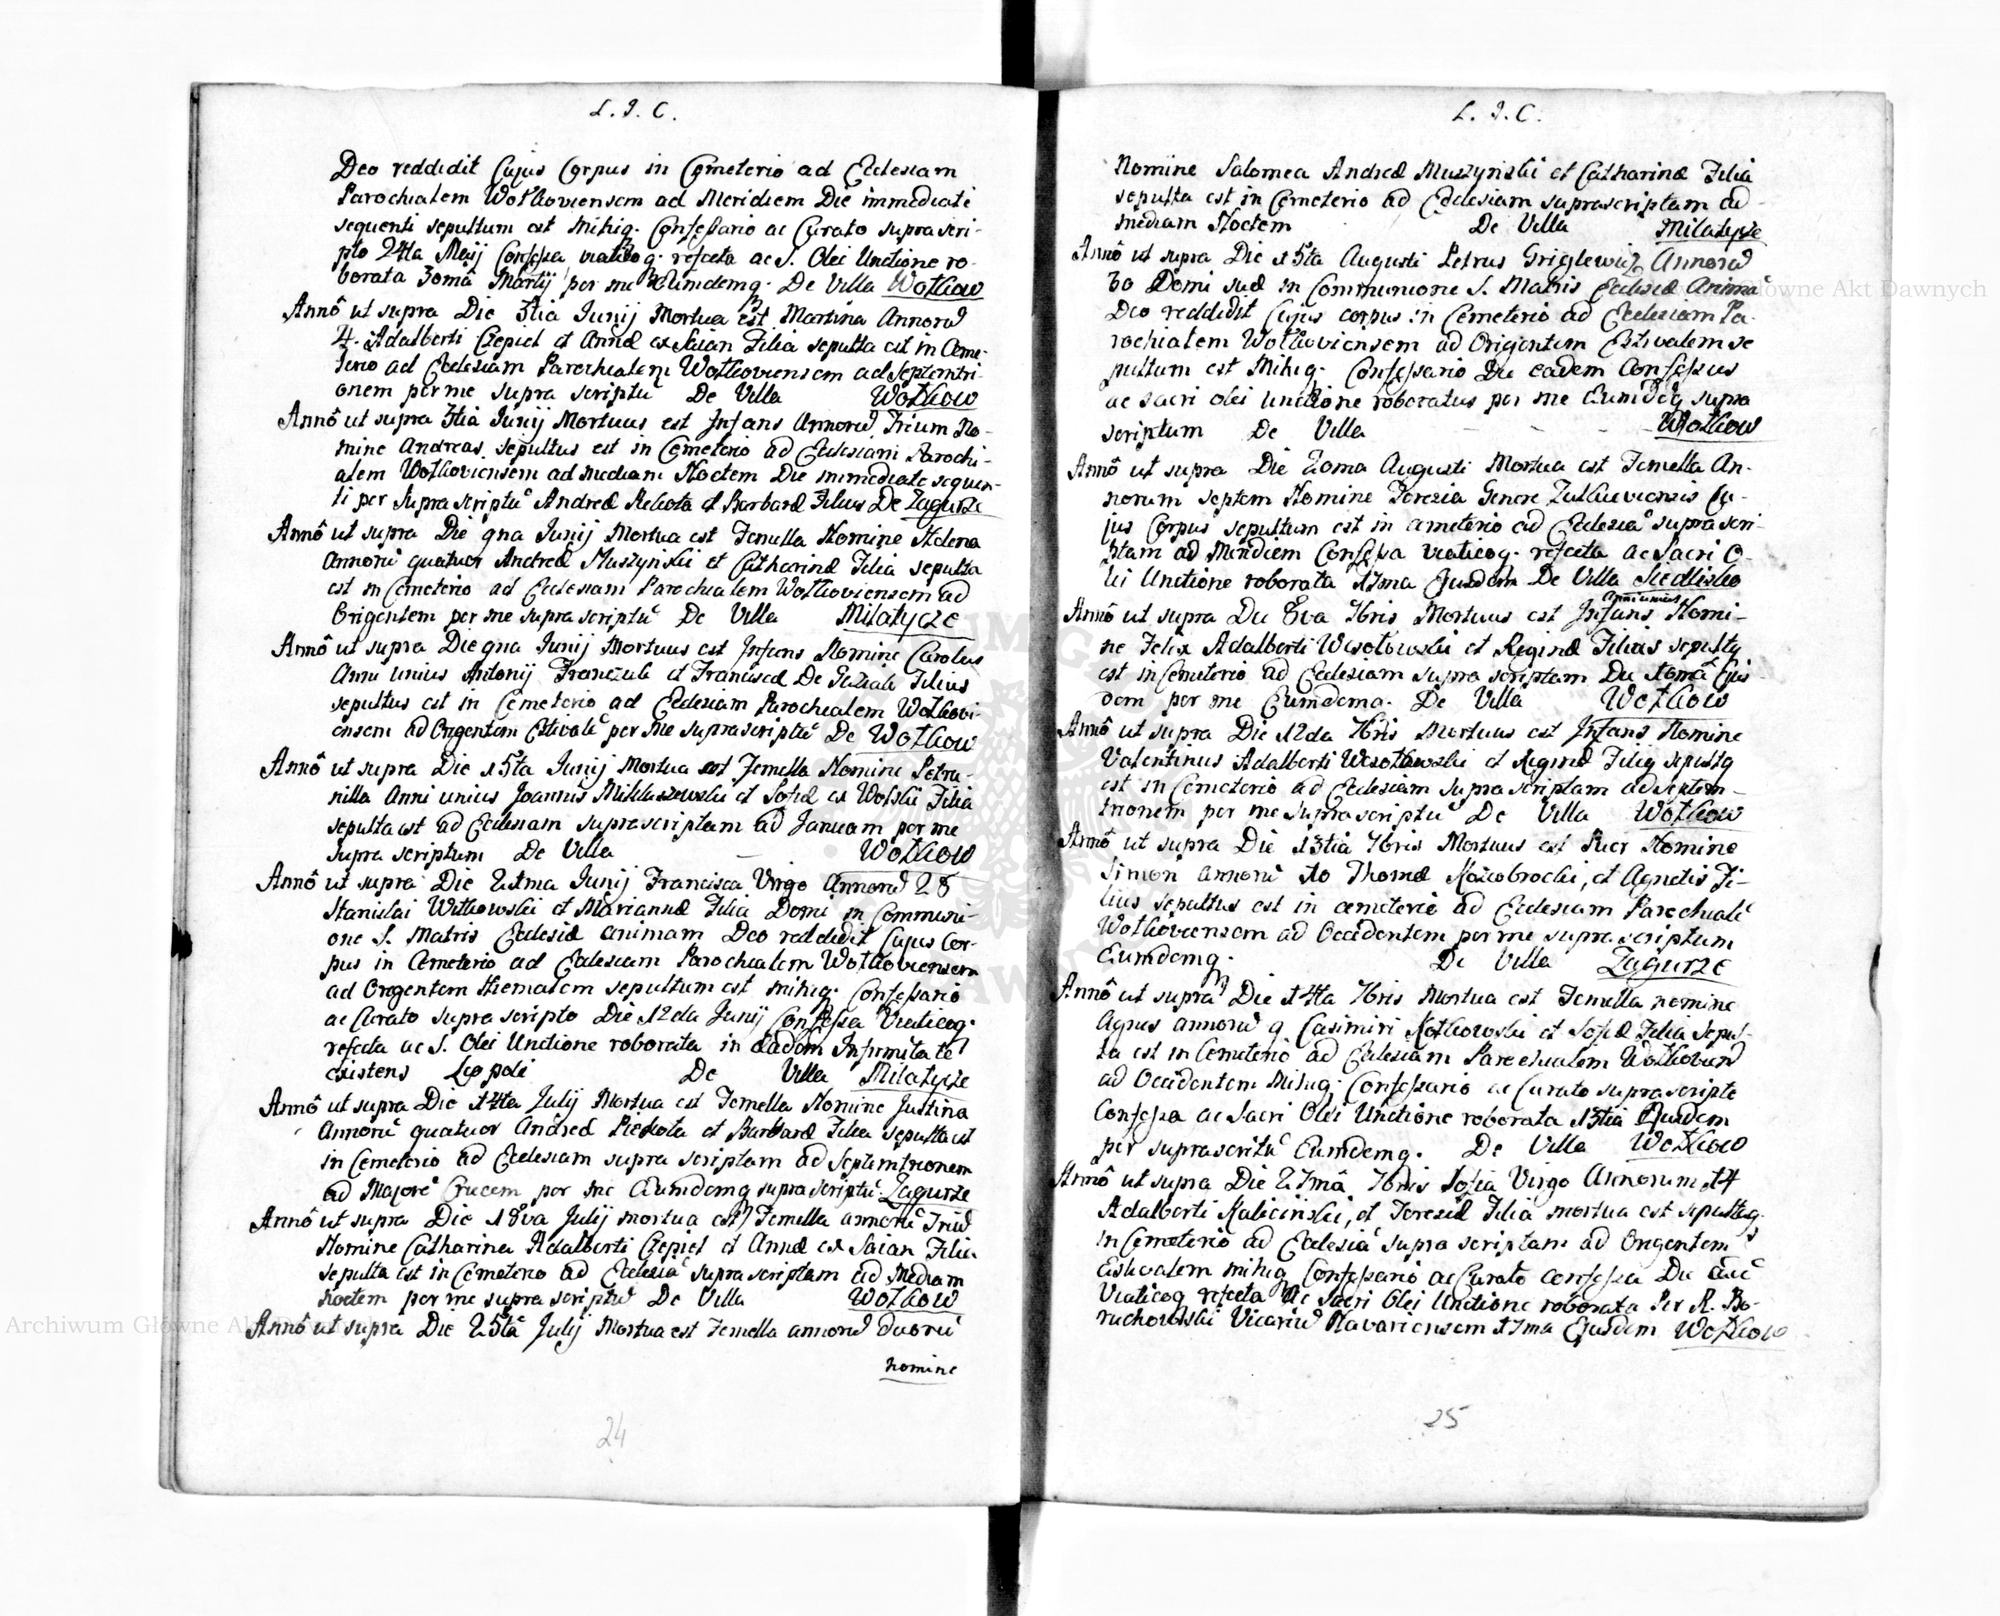 L. J. C.
Deo reddidit Cujus Corpus in Cemeterio ad Ecclesiam
Parochialem Wołkoviensem ad Meridiem Die immediate
sequenti sepultum est mihiq. Confessario ac Curato suprascri-
pto 24ta Maij Confessa viaticoq. refecta ac S. Olei Unctione ro-
borata 30mâ Martij per me Eumdemq. De Villa Wołkow
Annô ut supra Die 3tia Junij Mortua est Martina Annorū
4. Adalberti Czepiel et Annæ ex Saian Filia sepulta est in Ceme-
terio ad Ecclesiam Parochialem Wołkoviensem ad Septemtri-
onem per me supra scriptū De Villa Wołkow
Annô ut supra 3tia Junij Mortuus est Infans Annorū Trium No-
mine Andreas sepultus est in Cemeterio ad Ecclesiam Parochi-
alem Wołkoviensem ad mediam Noctem Die immediate sequen-
ti per supra scriptū Andreæ et Barbaræ Filius De Zagurze
Annô ut supra Die 9na Junij Mortua est Femella Nomine Helena
Annorū quatuor Andreæ Muszyński et Catharinæ Filia sepulta
est in Cemeterio ad Ecclesiam Parochialem Wołkoviensem ad
Origentem per me supra scriptū De Villa Milatycze
Annô ut supra Die 9na Junij Mortuus est Infans Nomine Carolus
Anni unius Antonij Franczuk et Franciscæ De Filius
sepultus est in Cemeterio ad Ecclesiam Parochialem Wołkovi-
ensem ad Origentem Estivalē per me supra scriptū De Wołkow
Annô ut supra Die 15ta Junij Mortua est Femella Nomine Petro-
nilla Anni unius Joannis Miklaszewski et Sofiæ ex Wolski Filia
sepulta est ad Ecclesiam suprascriptam ad Januam per me
supra scriptum De Villa — Wołkow
Annô ut supra Die 21ma Junij Francisca Virgo Annorū 28
Stanislai Witkowski et Mariannæ Filia Domi in Communi-
one S. Matris Ecclesiæ animam Deo reddidit Cujus Cor-
pus in Cemeterio ad Ecclesiam Parochialem Wołkoviensem
ad Origentem Hiemalem sepultum est mihiq. Confessario
ac Curato supra scripto Die 12da Junij Confessa Viaticoq.
refecta ac S. Olei Unctione roborata in eadem Infirmitate
existens Leopoli De Villa Milatycze
Annô ut supra Die 14ta Julij Mortua est Femella Nomine Justina
Annorū quatuor Andreæ et Barbaræ Filia sepulta est
in Cemeterio ad Ecclesiam supra scriptam ad Septemtrionem
ad Majorē Crucem per me Eumdemq supra scriptū Zagurze
Annô ut supra Die 18va Julij mortua est Femella annorū Triū
Nomine Catharina Adalberti Czepiel et Annæ ex Saian Filia
sepulta est in Cemeterio ad Ecclesiā supra scriptam ad Mediam
noctem per me supra scriptū De Villa Wołkow
Annô ut supra Die 25tâ Julij Mortua est Femella annorū duorū
nomine
24
L. J. C.
Nomine Salomea Andreæ Muszyński et Catharinæ Filia
sepulta est in Cemeterio ad Ecclesiam suprascriptam ad
mediam Noctem De Villa Milatycze
Annô ut supra Die 15ta Augusti Petrus Griglewicz Annorū
30 Domi suæ in Communione S. Matris Ecclesiæ Animā
Deo reddidit Cujus corpus in Cemeterio ad Ecclesiam Pa-
rochialem Wołkoviensem ad Origentem Estivalem se
pultum est Mihiq. Confessario Die eadem Confessus
ac sacri olei unctione roboratus per me Eumdeq supra
scriptum De Villa - - - Wołkow
Annô ut supra Die 20ma Augusti Mortua est Femella An-
norum septem Nomine Teresia Genere Cu-
jus Corpus sepultum est in cemeterio ad Ecclesiā suprascri-
ptam ad Meridiem Confessa viaticoq. refecta ac Sacri O-
lei Unctione roborata 17ma Ejusdem De Villa Siedlisko
Annô ut supra Die 8va 7bris Mortuus est Infans Anni unius Nomi-
ne Felix Adalberti Wesołowski et Reginæ Filius sepultq
est in Cemeterio ad Ecclesiam supra scriptam Die 10mâ Ejus-
dem per me Eumdemq. De Villa Wołkow
Annô ut supra Die 12da 7bris Mortuus est Infans Nomine
Valentinus Adalberti Wesołowski et Reginæ Filiq sepultq
est in Cemeterio ad Ecclesiam supra scriptam ad septem-
trionem per me supra scriptū De Villa Wołkow
Annô ut supra Die 13tia 7bris Mortuus est Puer Nomine
Simon annorū 10 Thomæ Kozłobrocki, et Agnetis Fi-
lius sepultus est in cemeterio ad Ecclesiam Parochialē
Wołkoviensem ad Occidentem per me supra scriptum
Eumdemq. De Villa Zagurze
Annô ut supra Die 14ta 7bris Mortua est Femella nomine
Agnes annorū 9 Casimiri Kotkowski et Sofiæ Filia Sepul-
ta est in Cemeterio ad Ecclesiam Parochialem Wołkovien
ad Occidentem Mihiq. Confessario ac Curato supra scripto
Confessa ac Sacri Olei Unctione roborata 13tia Ejusdem
per suprascritū Eumdemq. De Villa Wołkow
Annô ut supra Die 27mâ 7bris Sofia Virgo Annorum 14
Adalberti Kaliciński, et Teresiæ Filia mortua est sepultaq.
in Cemeterio ad Ecclesiā supra scriptam ad Origentem
Estivalem mihiq Confessario ac Curato confessa Die
Viaticoq refecta ac Sacri Olei Unctione roborata Per R. Bo-
ruchowski Vicariū Navariensem 17ma Ejusdem Wołkow
25
Archiwum Główne Akt Dawnych